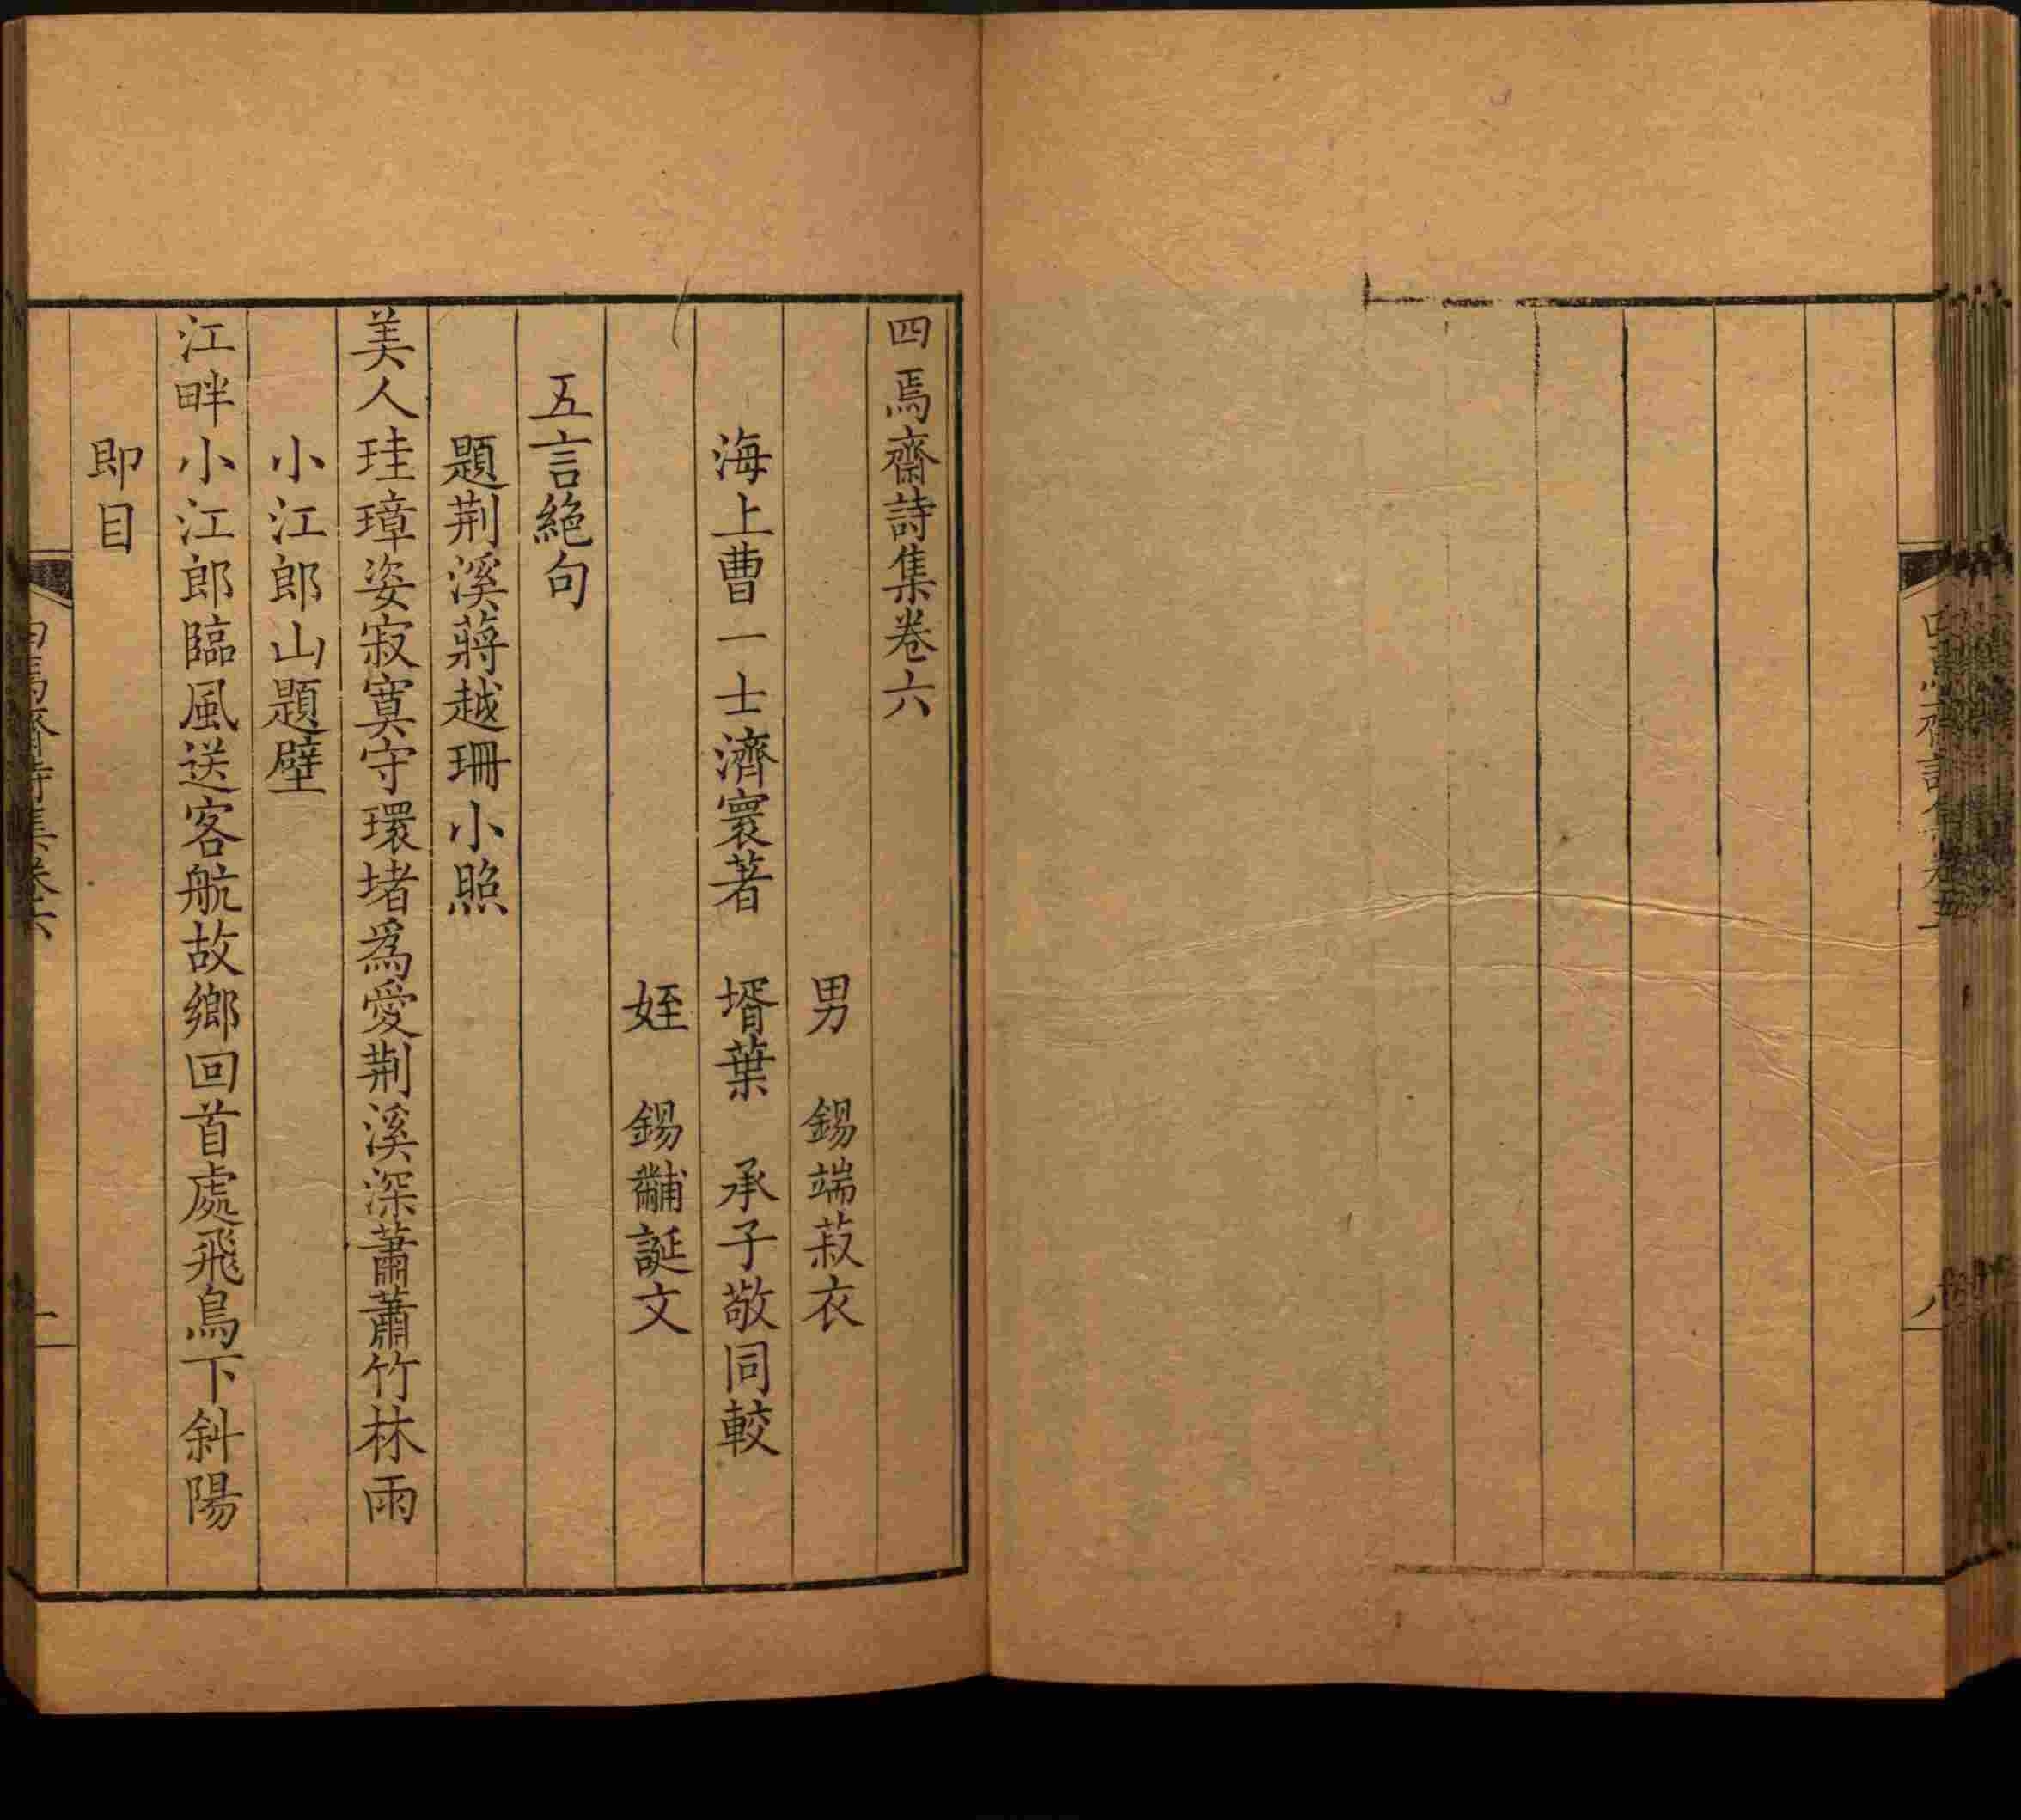 四焉齋詩集卷六
男　錫端菽衣
海上曹一士濟寰著　壻葉　承子敬同較
姪　錫黼誕文
五言絕句
題荆溪蔣越珊小照
美人珪璋姿寂寞守環堵爲愛荆溪深蕭蕭竹林雨
小江郎山題壁
江畔小江郎臨風送客航故鄉回首處飛鳥下斜陽
即目
四焉齋詩集卷六
一